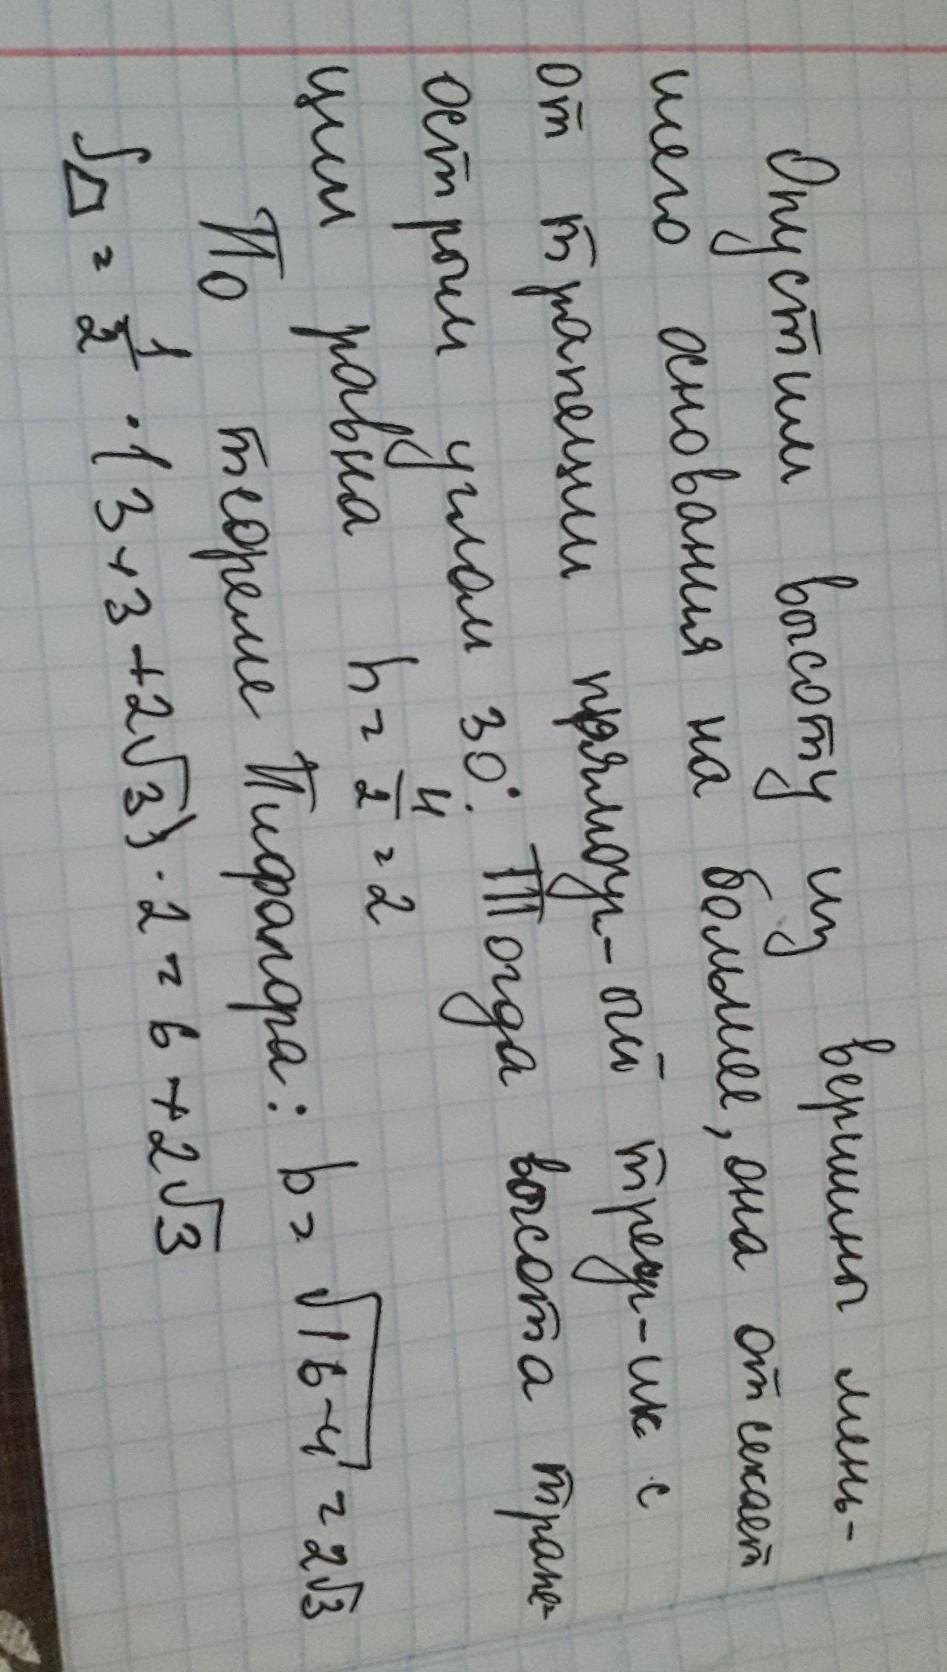 Опустим высоту из вершины мень-
шего основания на большее, она отсекает
от трапеции прямоуг-ый треуг-ик с
острым углом 30°. Тогда высота трапе-
ции равна h = 4/2 = 2
По теореме Пифагора: b = √16-4 = 2√3
S△ = 1/2 · (3+3+2√3) · 2 = 6+2√3